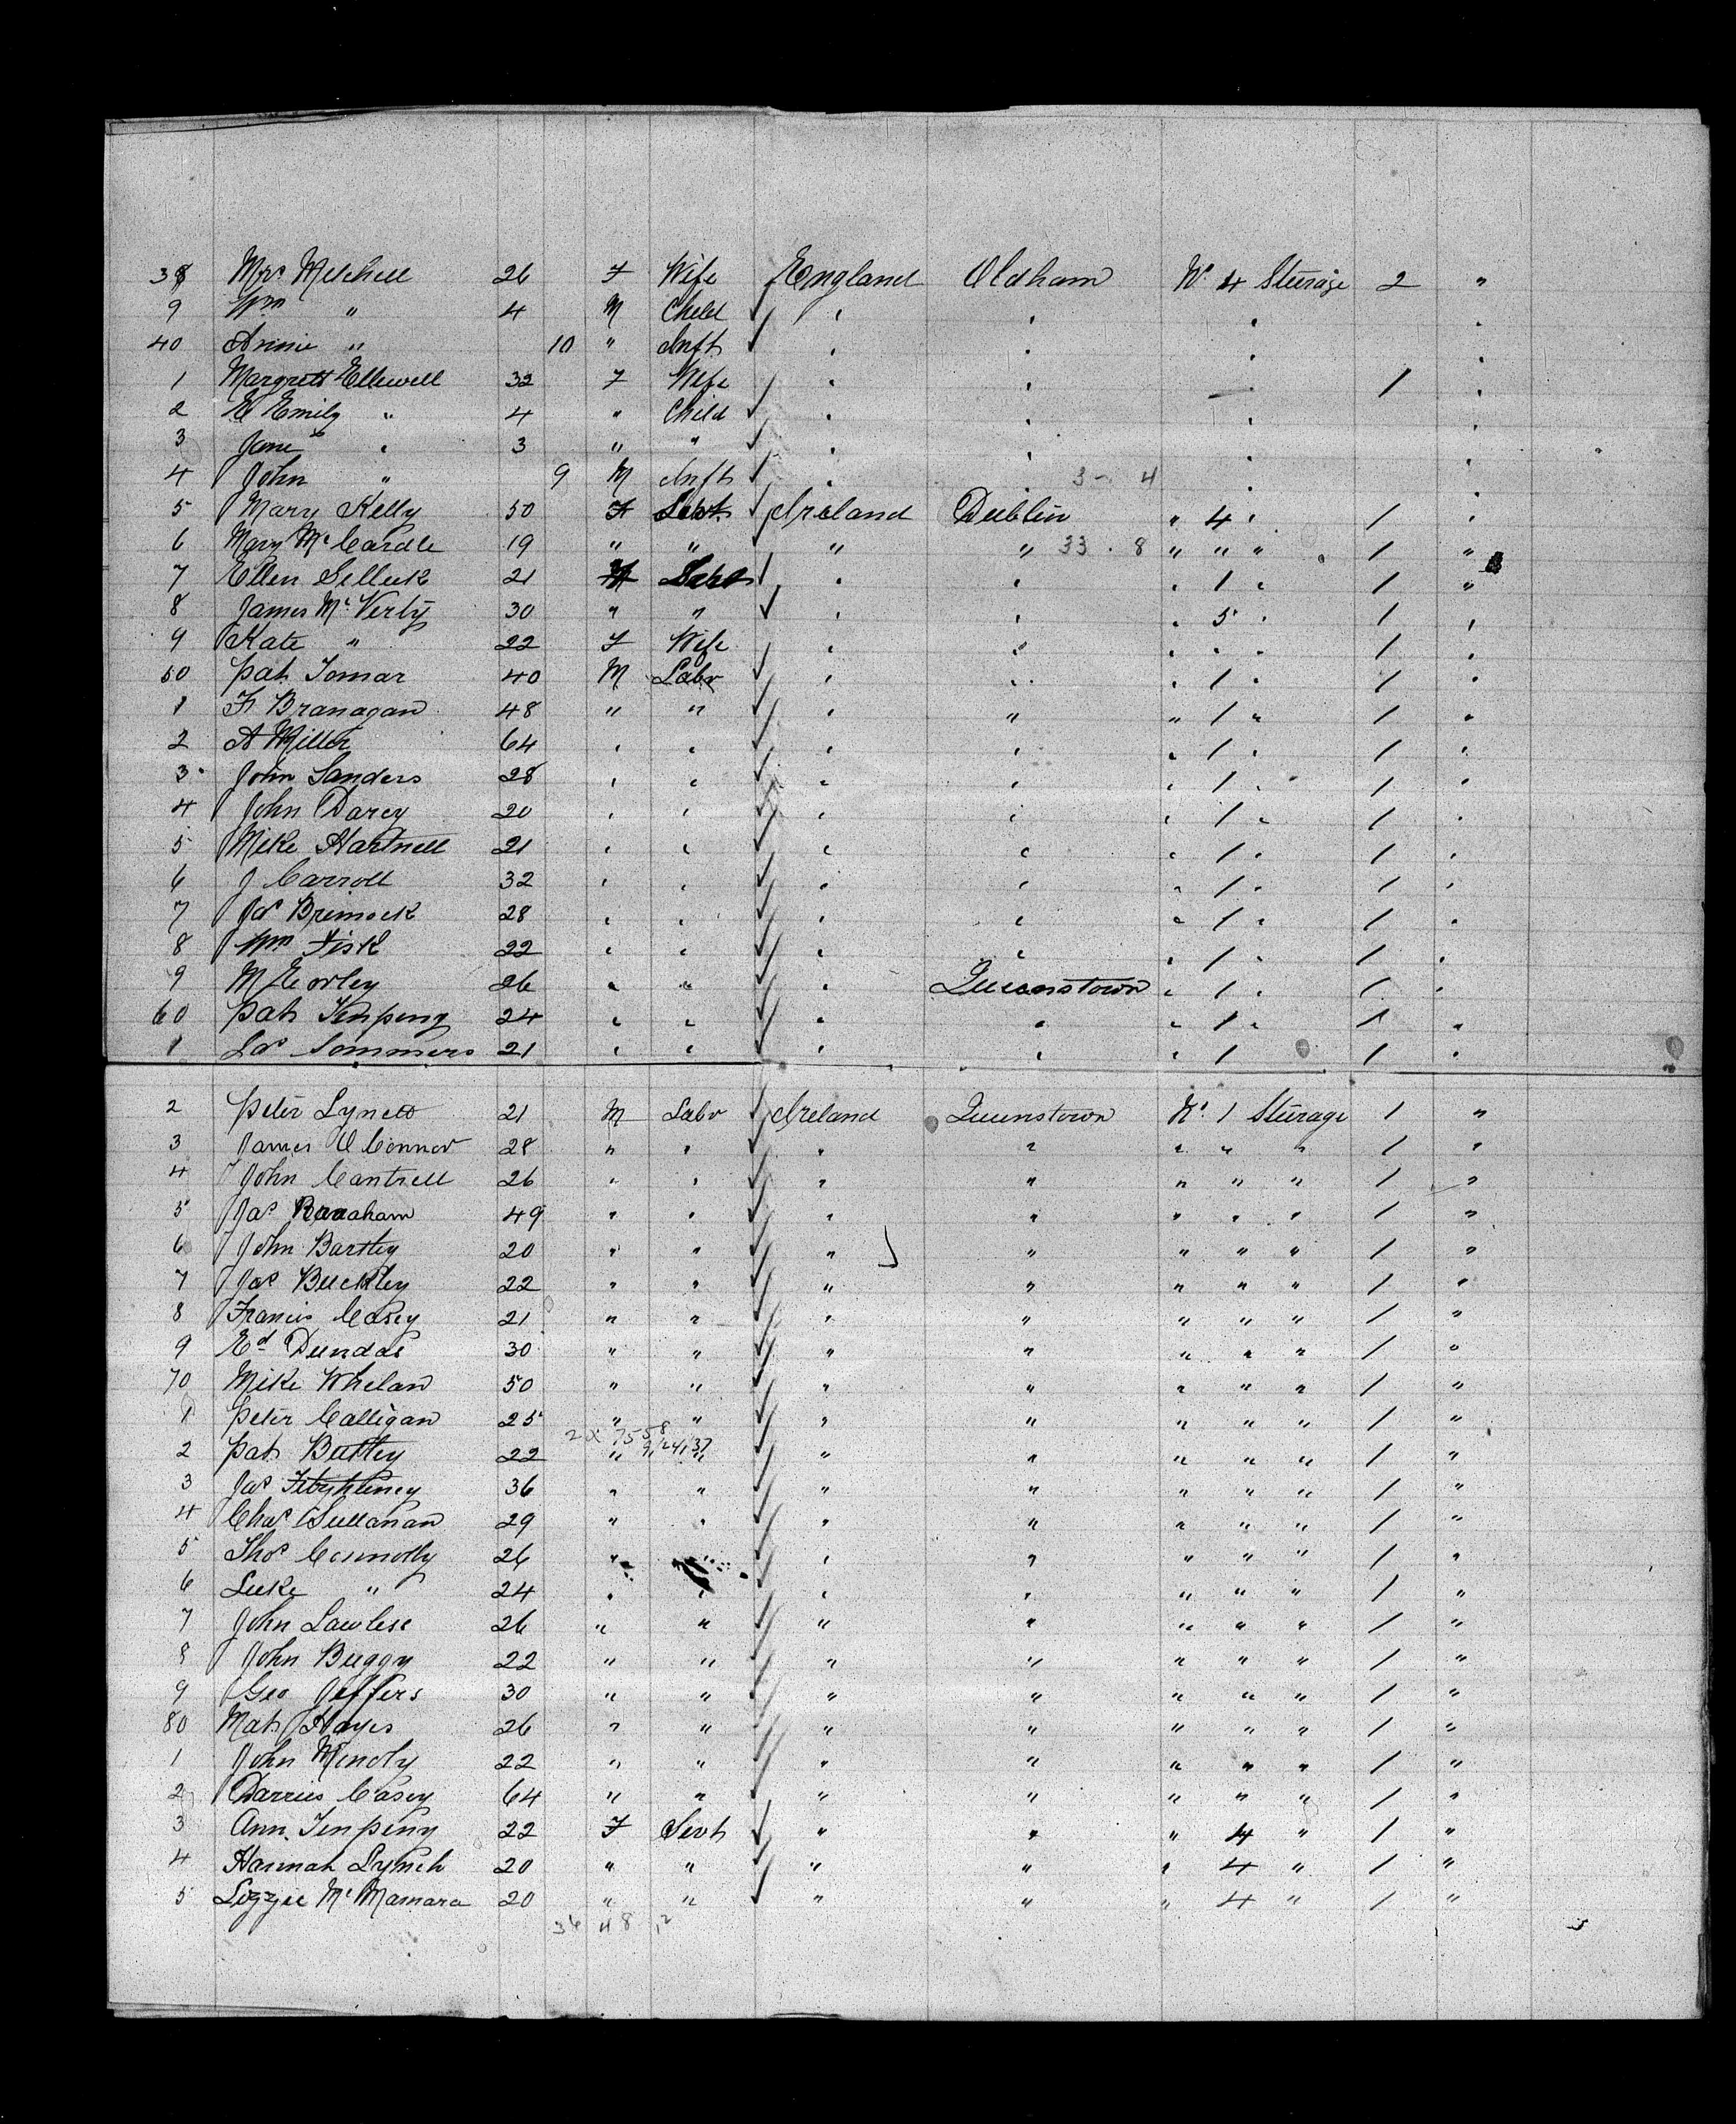 38 Mrs Mitchell 26 F Wife England Oldham No. 4 Steerage 2 "
9 Wm " 4 M Child ✓ " " " "
40 Annie " 10 " Inft ✓ " " " "
1 Margrett Ellewell 32 F Wife " " " 1 "
2 E Emily " 4 " Child ✓ " " " "
3 Jane " 3 " " ✓ " " " "
4 John " 9 M Inft ✓ " " 3 - 4 " "
5 Mary Kelly 50 F Servt ✓ Ireland Dublin " 4 " 1 "
6 Mary McCardle 19 " " " " 33 . 8 " " " 1 "
7 Ellen Selleck 21 ✓ " " " 1 " 1 "
8 James McVerty 30 " " ✓ " " " 5 " 1 "
9 Kate " 22 F Wife " " " " " 1 "
50 Pat Tomar 40 M Labr ✓ " " " 1 " 1 "
1 F Branagan 48 " " ✓ " " " 1 " 1 "
2 A Miller 64 " " ✓ " " " 1 " 1 "
3 John Sanders 28 " " ✓ " " " 1 " 1 "
4 John Darcy 20 " " ✓ " " " 1 " 1 "
5 Mike Hartnell 21 " " ✓ " " " 1 " 1 "
6 J Carroll 32 " " ✓ " " " 1 " 1 "
7 Jas Brimock 28 " " ✓ " " " 1 " 1 "
8 Wm Fisk 22 " " ✓ " " " 1 " 1 "
9 M Corley 26 " " ✓ " Queenstown " 1 " 1 "
60 Pat Tenpeny 24 " " ✓ " " " 1 " 1 "
1 Jas Sommers 21 " " ✓ " " " 1 1 "
2 Peter Lynch 21 M Labr ✓ Ireland Queenstown No. 1 Steerage 1 "
3 James O Connor 28 " " ✓ " " " " " 1 "
4 John Cantrell 26 " " ✓ " " " " " 1 "
5 Jas 49 " " ✓ " " " " " 1 "
6 John Bartley 20 " " ✓ " " " " " 1 "
7 Jas Buckley 22 " " ✓ " " " " " 1 "
8 Francis Casey 21 " " ✓ " " " " " 1 "
9 Ed Dundas 30 " " ✓ " " " " " 1 "
70 Mike Whelan 50 " " ✓ " " " " " 1 "
1 Peter Calligan 25 " " ✓ " " " " " 1 "
2 Pat Buttley 22 " " ✓ " " " " " 1 "
3 Jas 36 " " ✓ " " " " " 1 "
4 Chas Sullanan 29 " " ✓ " " " " " 1 "
5 Thos Connolly 26 " ✓ " " " " " 1 "
6 Luke " 24 " " ✓ " " " " " 1 "
7 John Lawless 26 " " ✓ " " " " " 1 "
8 John Buggy 22 " " ✓ " " " " " 1 "
9 Geo Jeffers 30 " " ✓ " " " " " 1 "
80 Mat Hayes 26 " " ✓ " " " " " 1 "
1 John Mindly 22 " " ✓ " " " " " 1 "
2 Darrius Casey 64 " " ✓ " " " " " 1 "
3 Ann Tenpeny 22 F Servt ✓ " " " 4 " 1 "
4 Hannah Lynch 20 " " ✓ " " " 4 " 1 "
5 Lizzie McMamara 20 " " ✓ " " " 4 " 1 "
36 48 12